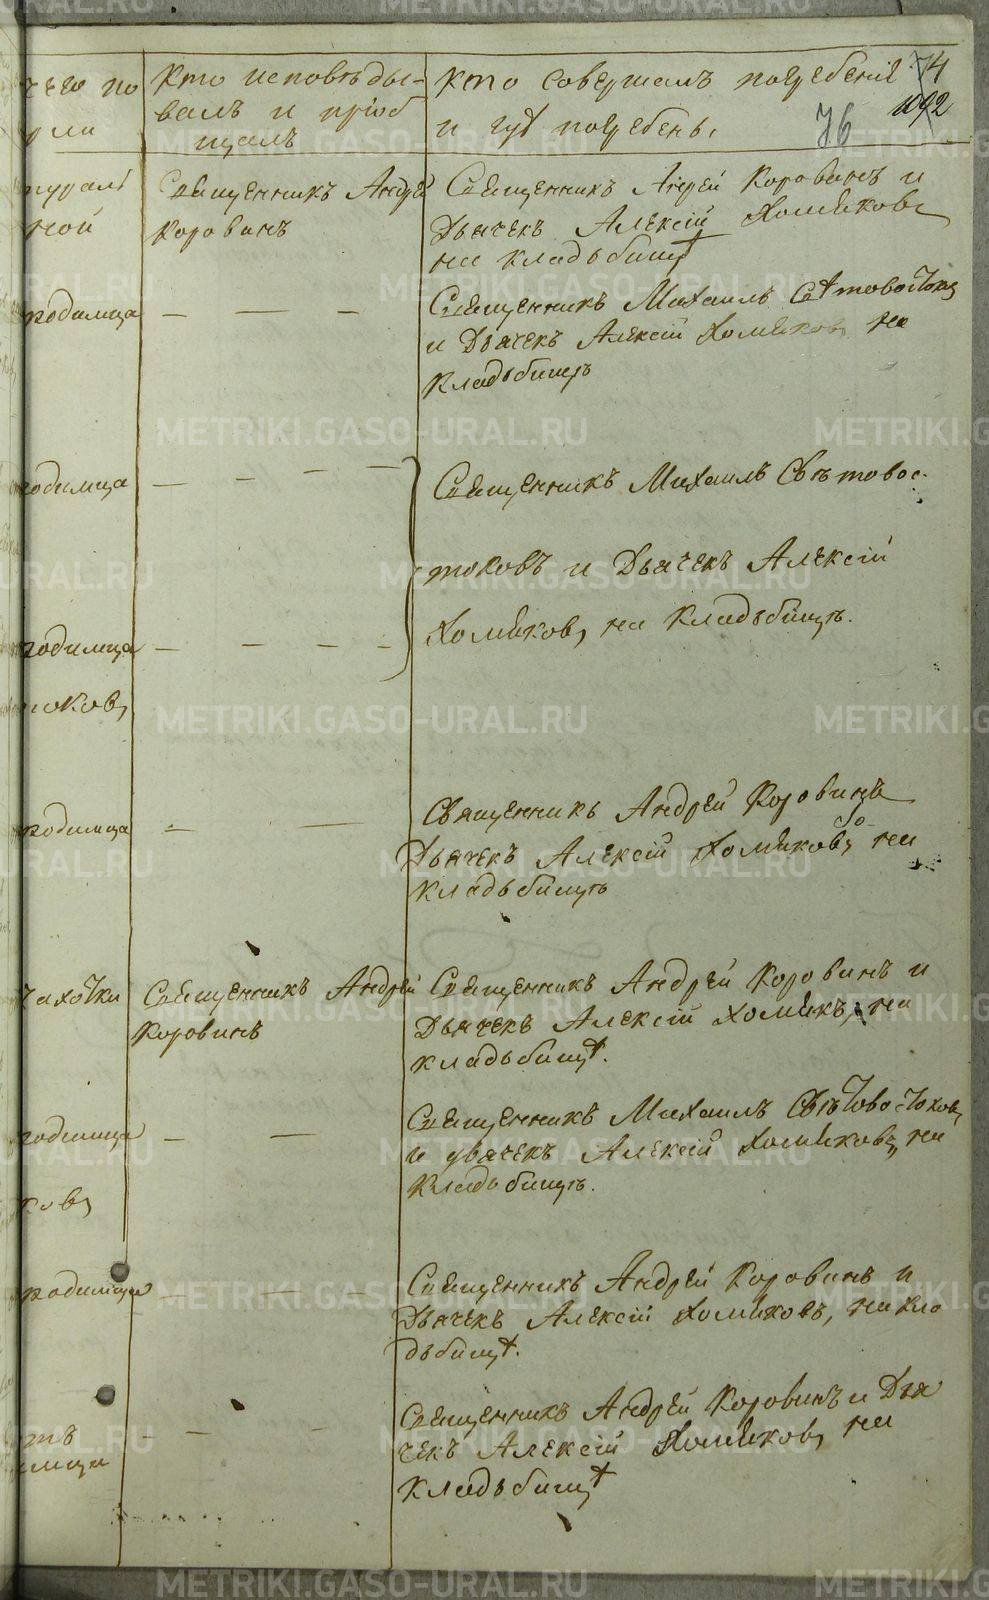 чего по
рли
Кто исповѣды-
валъ и пріоб
щалъ
Кто совершалъ погребеніе
и гдѣ погребены.
74
76
1092
ной
Священникъ Андрей
Коровинъ
Священникъ Андрей Коровинъ и
Дьячекъ Алексій Хомяковъ
на кладьбищѣ
родимца — — —
Священникъ Михаилъ Свѣтовостоковъ
и Дьячекъ Алексій Хомяковъ на
кладьбищѣ
родимца — — — —
Священникъ Михаилъ Свѣтовос-
токовъ и Дьячекъ Алексій
родимца — — — —
Хомяковъ, на кладьбищѣ.
родимца — —
Священникъ Андрей Коровинъ
Дьячекъ Алексій Хомяковъ на
кладьбищѣ
чахотки
Священникъ Андрей
Коровинъ
Священникъ Андрей Коровинъ и
Дьячекъ Алексій Хомякъ, на
кладьбищѣ.
родимца — —
Священникъ Михаилъ Свѣтовостоковъ
и дьячекъ Алексій Хомяковъ, на
кладьбищѣ.
ковъ
родимца — — —
Священникъ Андрей Коровинъ и
Дьячекъ Алексій Хомяковъ, на кла
дьбищѣ.
— — —
Священникъ Андрей Коровинъ и Дья
чекъ Алексій Хомяковъ на
кладьбищѣ
METRIKI.GASO-URAL.RU